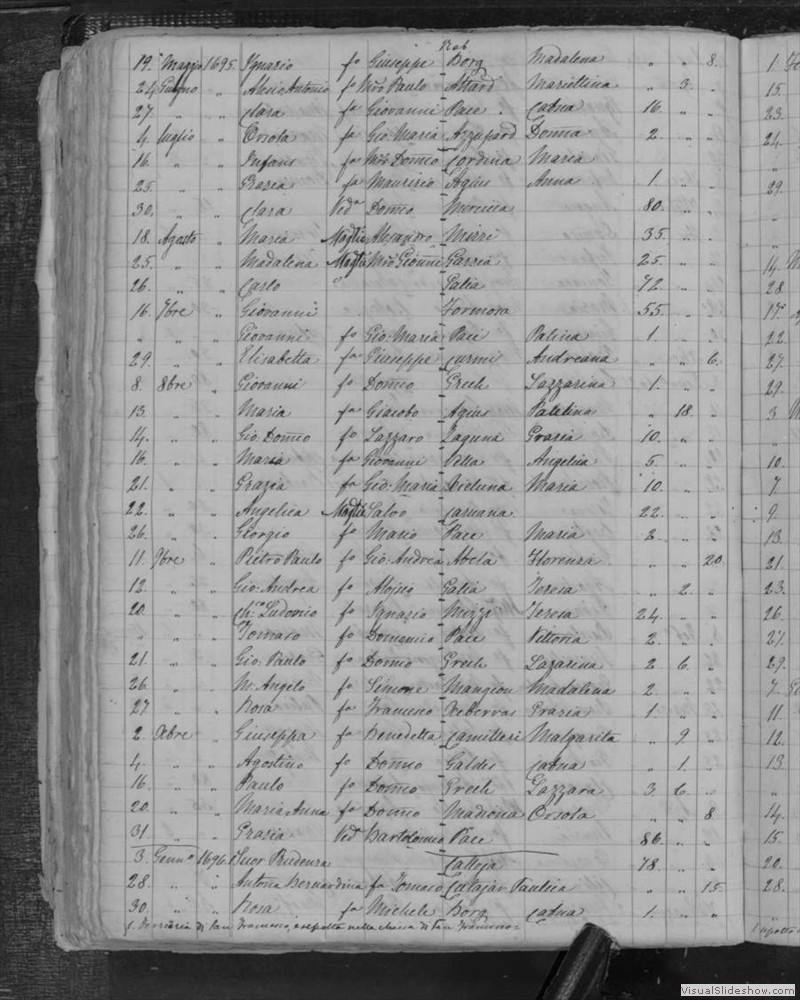 Rab
19. Maggio 1695. Ignazio fo Giuseppe Borg Madalena " " 8.
24 Giugno " Alesio Antonio fo Mro Paulo Attard Mariettina " 3. "
27. " " Clara fa Giovanni Pace Catna 16. " "
4. Luglio " Orsola fa Gio: Maria Azzupard Domna 2. " "
16. " " Infans fo Mro Domco Cordina Maria
25. " " Grazia fa Maurizio Agius Anna 1. " "
30. " " Clara Veda Domco Mernica 80. " "
18. Agosto " Maria Moglie Alesandro Mizzi 35. " "
25. " " Madalena Moglie Mro Gionni Garzia 25. " "
26. " " Carlo Galia 72. " "
16. 7bre " Giovanni Formosa 55. " "
" " " Giovanni fo Gio: Maria Pace Palina 1. " "
29. " " Elisabetta fa Giuseppe Curmi Andreana " " 6.
8. 8bre " Giovanni fo Domco Grech Lazzarina 1. " "
13. " " Maria fa Giacobo Agius Paletina " 18. "
14. " " Gio: Domco fo Lazzaro Zaguna Grazia 10. " "
16. " " Maria fa Giovanni Vella Angelica 5. " "
21. " " Grazia fa Gio: Maria Xicluna Maria 10. " "
22. " " Angelica Moglie Salvo Caruana 22. " "
26. " " Giorgio fo Mario Pace Maria 2. " "
11. 9bre " Pietro Paulo fo Gio: Andrea Abela Florenza " " 20
12. " " Gio: Andrea fo Aloysio Galia Teresa " 2. "
20. " " Chco Ludovico fo Ignazio Mizzi Teresa 24. " "
" " " Tomaso fo Domenico Pace Vittoria 2. " "
21. " " Gio: Paulo fo Domco Grech Lazarina 2 6. "
26. " " M. Angelo fo Simone Mangion Madalena 2. " "
27. " " Rosa fa Francesco Xeberras Grazia 1. " "
2. Xbre " Giuseppa fa Benedetta Camilleri Malgarita " 9 "
4. " " Agostino fo Domco Galdes Catna " 1. "
16. " " Paulo fo Domco Grech Lazzara 3. 6. "
20. " " Maria Anna fa Domco Madiona Orsola " " 8
31 " " Grazia Veda Bartolomeo Pace 86. " "
3. Genno 1696. Suor Prudenza Calleja 78. " "
28. " " Antonia Bernardina fa Tomaso Catajar Paulica " " 15.
30. " " Rosa fa Michele Borg Catna 1. " "
1. Terziaria di San Francesco, e sepolta nella chiesa di San Francesco
1
15.
23.
24.
"
29.
"
"
14.
28.
17.
22.
27.
29.
3
"
10.
7.
9.
13.
21.
23.
26.
27.
29.
7.
11.
12.
13.
"
14.
15.
20.
28.
VisualSlideshow.com